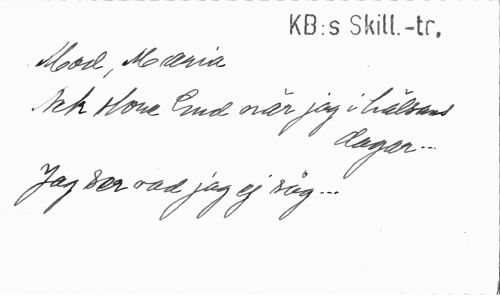 KB:s Skill.-tr.
Mod, Maria
Ack store Gud när jag i hälsans
dagar...
Jag ser vad jag ej såg...